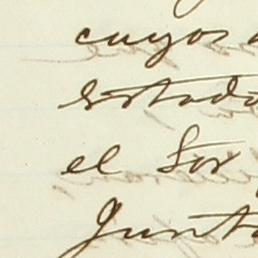 cuyos
estado
el Sor
Junta